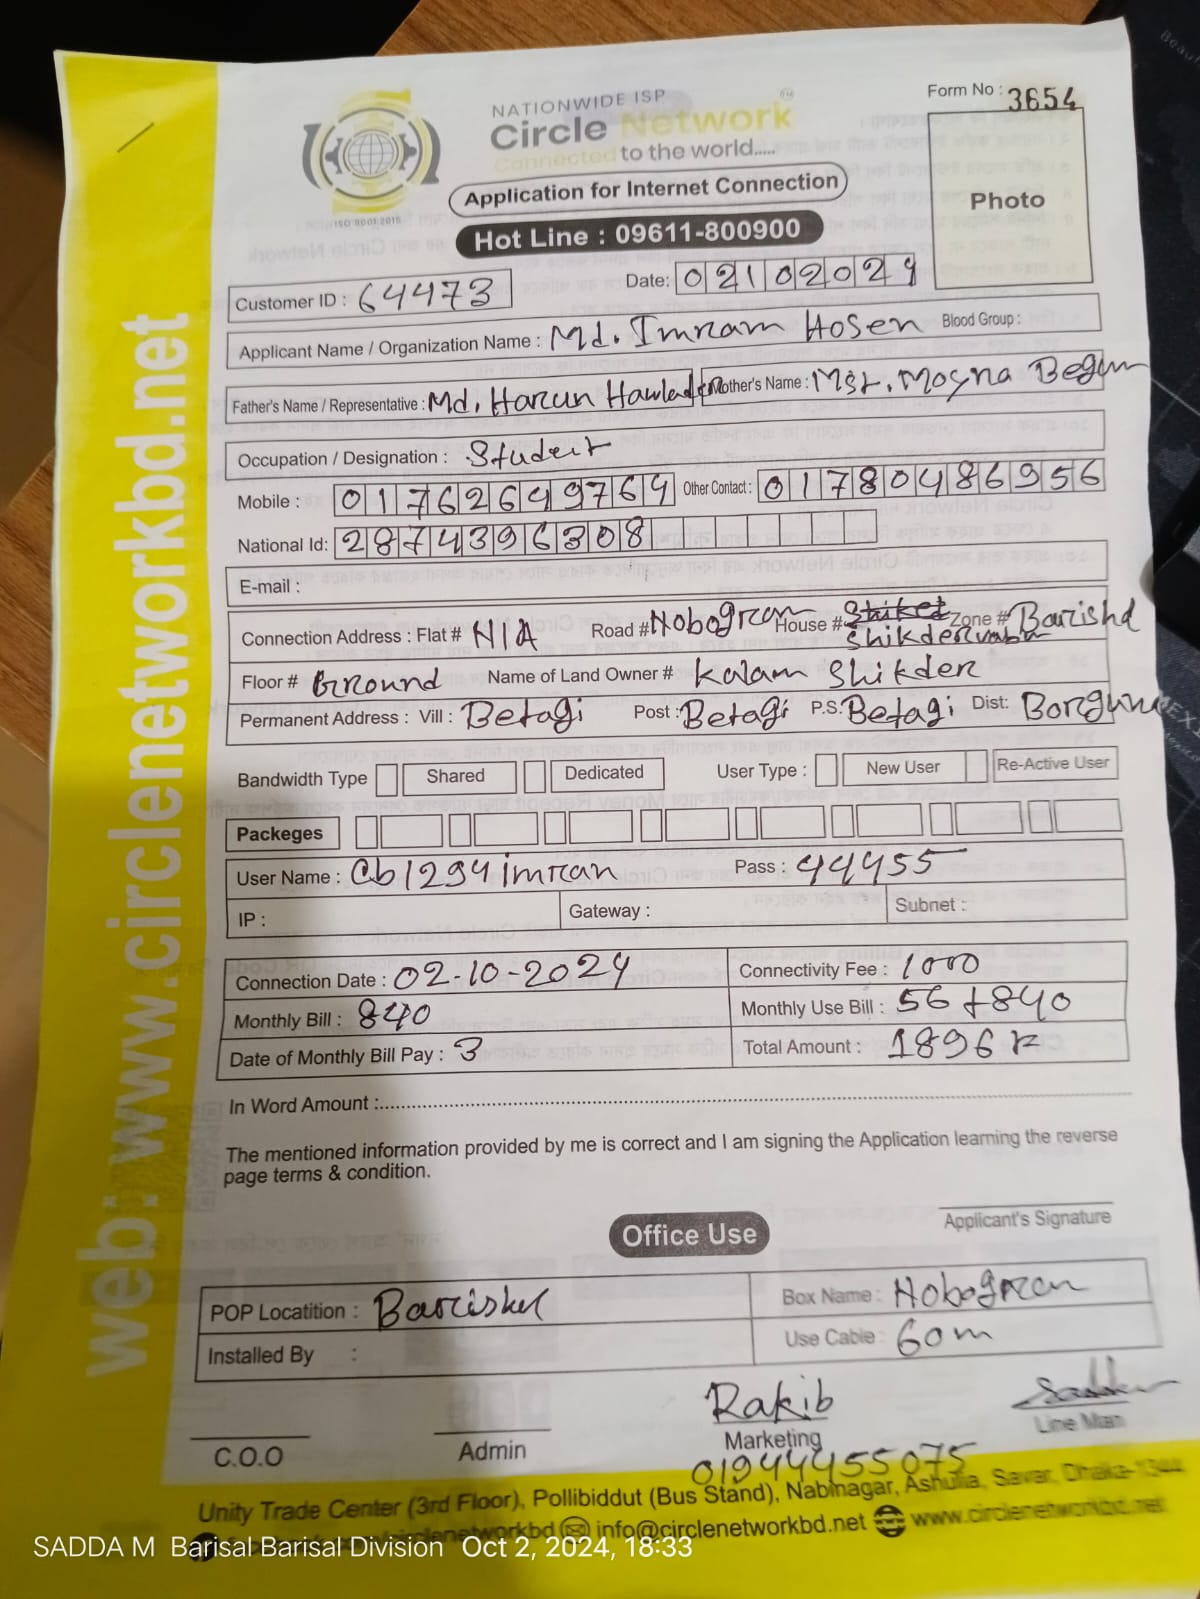 Form No : 3654
NATIONWIDE ISP
Circle Network
Connected to the world.....
ISO 9001:2015
Application for Internet Connection
Photo
Hot Line : 09611-800900
Date: 02102024
Customer ID : 64473
Applicant Name / Organization Name : Md. Imram Hosen Blood Group :
Father's Name / Representative : Md. Harun Hawlader Mother's Name : Mst. Moyna Begum
Occupation / Designation : Student
Mobile : 01762649764 Other Contact : 01780486956
National Id: 2874396308
E-mail :
Connection Address : Flat # N/A Road # Nobogram House # Shikdervabon Zone # Barishal
Floor # Ground Name of Land Owner # Kalam Shikder
Permanent Address : Vill : Betagi Post : Betagi P.S: Betagi Dist: Borguna
Bandwidth Type Shared Dedicated User Type : New User Re-Active User
Packeges
User Name : Cb1294imran Pass : 44455
IP : Gateway : Subnet :
Connection Date : 02-10-2024 Connectivity Fee : 1000
Monthly Bill : 840 Monthly Use Bill : 56+840
Date of Monthly Bill Pay : 3 Total Amount : 1896
In Word Amount :
The mentioned information provided by me is correct and I am signing the Application learning the reverse
page terms & condition.
Applicant's Signature
Office Use
POP Locatition : Barishal Box Name : Nobogram
Installed By : Use Cable : 60m
Rakib
C.O.O Admin Marketing Line Man
01944455075
Unity Trade Center (3rd Floor), Pollibiddut (Bus Stand), Nabinagar, Ashulia, Savar, Dhaka-1344
info@circlenetworkbd.net www.circlenetworkbd.net
web: www.circlenetworkbd.net
SADDA M Barisal Barisal Division Oct 2, 2024, 18:33